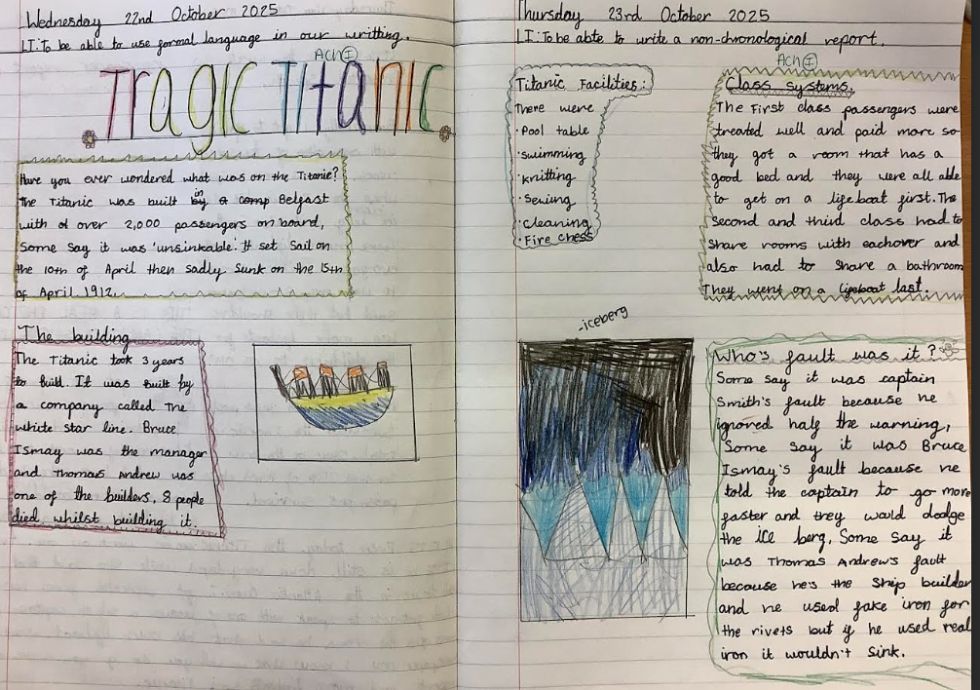 Wednesday 22nd October 2025
LI: To be able to use formal language in our writting.
ACH I
Tragic Titanic.
Have you ever wondered what was on the Titanic?
The Titanic was built in Belfast
with of over 2,000 passengers on board,
Some say it was 'unsinkable'. It set Sail on
the 10th of April then sadly Sunk on the 15th
of April 1912.
The building
The Titanic took 3 years
to built. It was built by
a company called The
white star line. Bruce
Ismay was the manager
and Thomas Andrew was
one of the builders. 8 people
died whilst building it.
Thursday 23rd October 2025
LI: To be able to write a non-chronological report.
ACH I
Titanic Facilities:
There were
·Pool table
·swimming
·knitting
·Sewing
·Cleaning
·Fire chess
Class systems.
The First class passengers were
treated well and paid more so
they got a room that has a
good bed and they were all able
to get on a lifeboat first. The
Second and third class had to
share rooms with eachover and
also had to share a bathroom
They went on a lifeboat last.
-iceberg
Who's fault was it?
Some say it was captain
Smith's fault because he
ignored half the warning,
Some say it was Bruce
Ismay's fault because he
told the captain to go more
faster and they would dodge
the ice berg. Some say it
was Thomas Andrew's fault
because he's the Ship builder
and he used fake iron for
the rivets but if he used real
iron it wouldn't Sink.